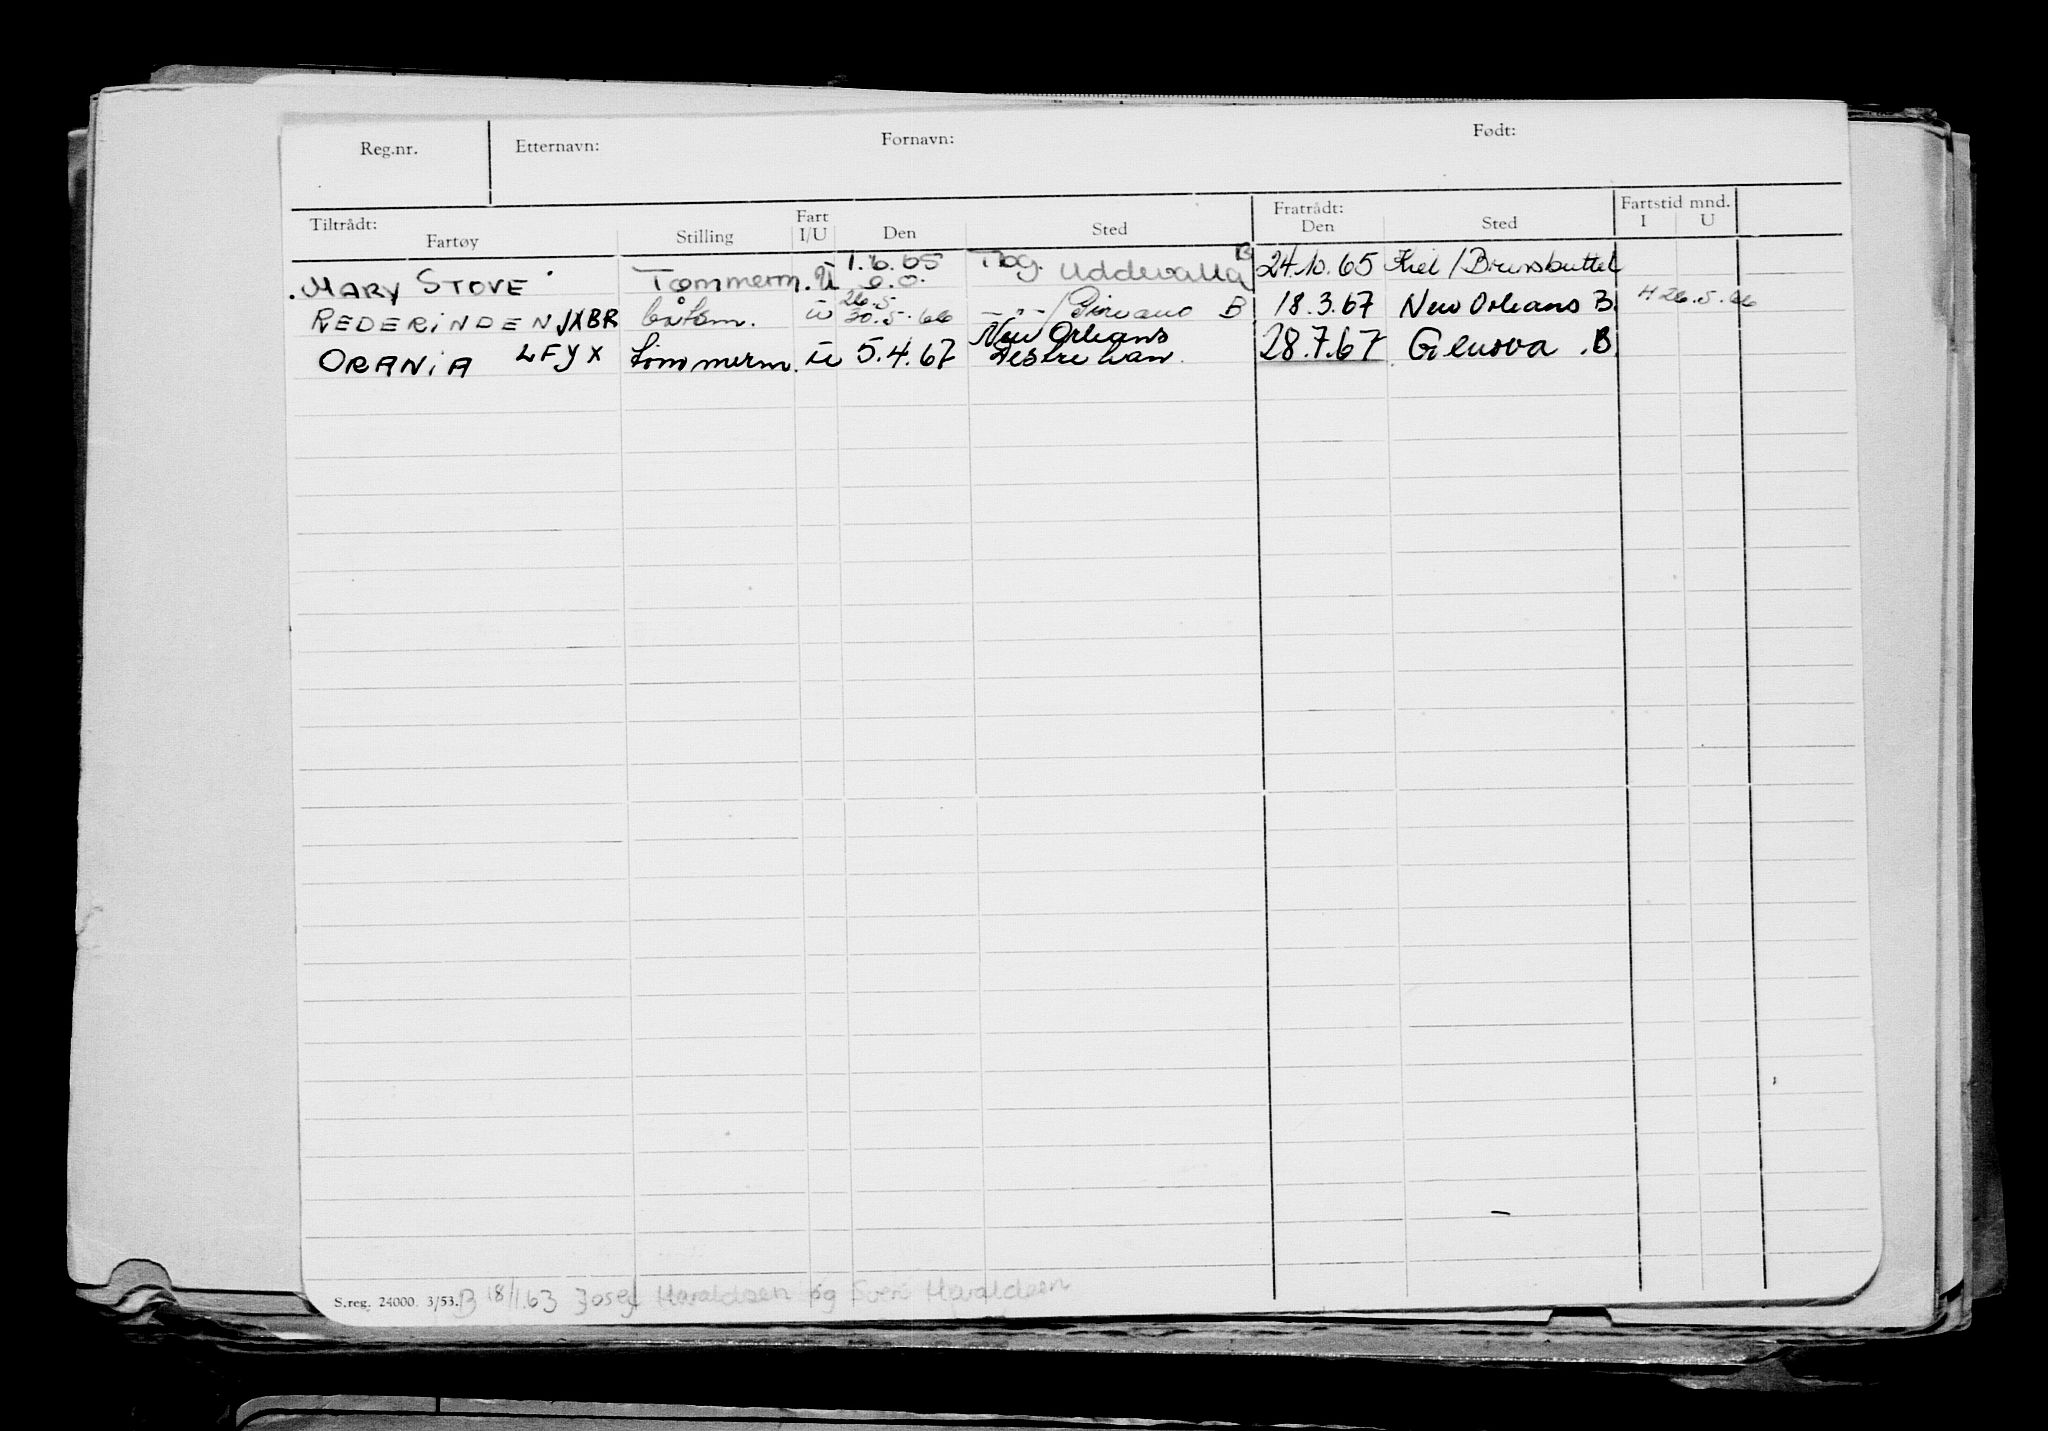 Reg.nr. Etternavn: Fornavn: Født:
Tiltrådt: Fartøy Stilling Fart I/U Den Sted Fratrådt: Den Sted Fartstid mnd. I U
MARY STOVE Tømmerm. U 1.6.65 Tbg. Uddevalla B 24.10.65 Kiel / Brunsbuttel
REDERINDEN JXBR båtsm. u 26.5 30.5.66 - " - / B 18.3.67 New Orleans B. 26.5.66
ORANIA LFYX tømmerm. u 5.4.67 New Orleans Destrehan. 28.7.67 Genova .B.
S.reg. 24000. 3/53. B 18/1.63 Josef Haraldsen og Sven Haraldsen